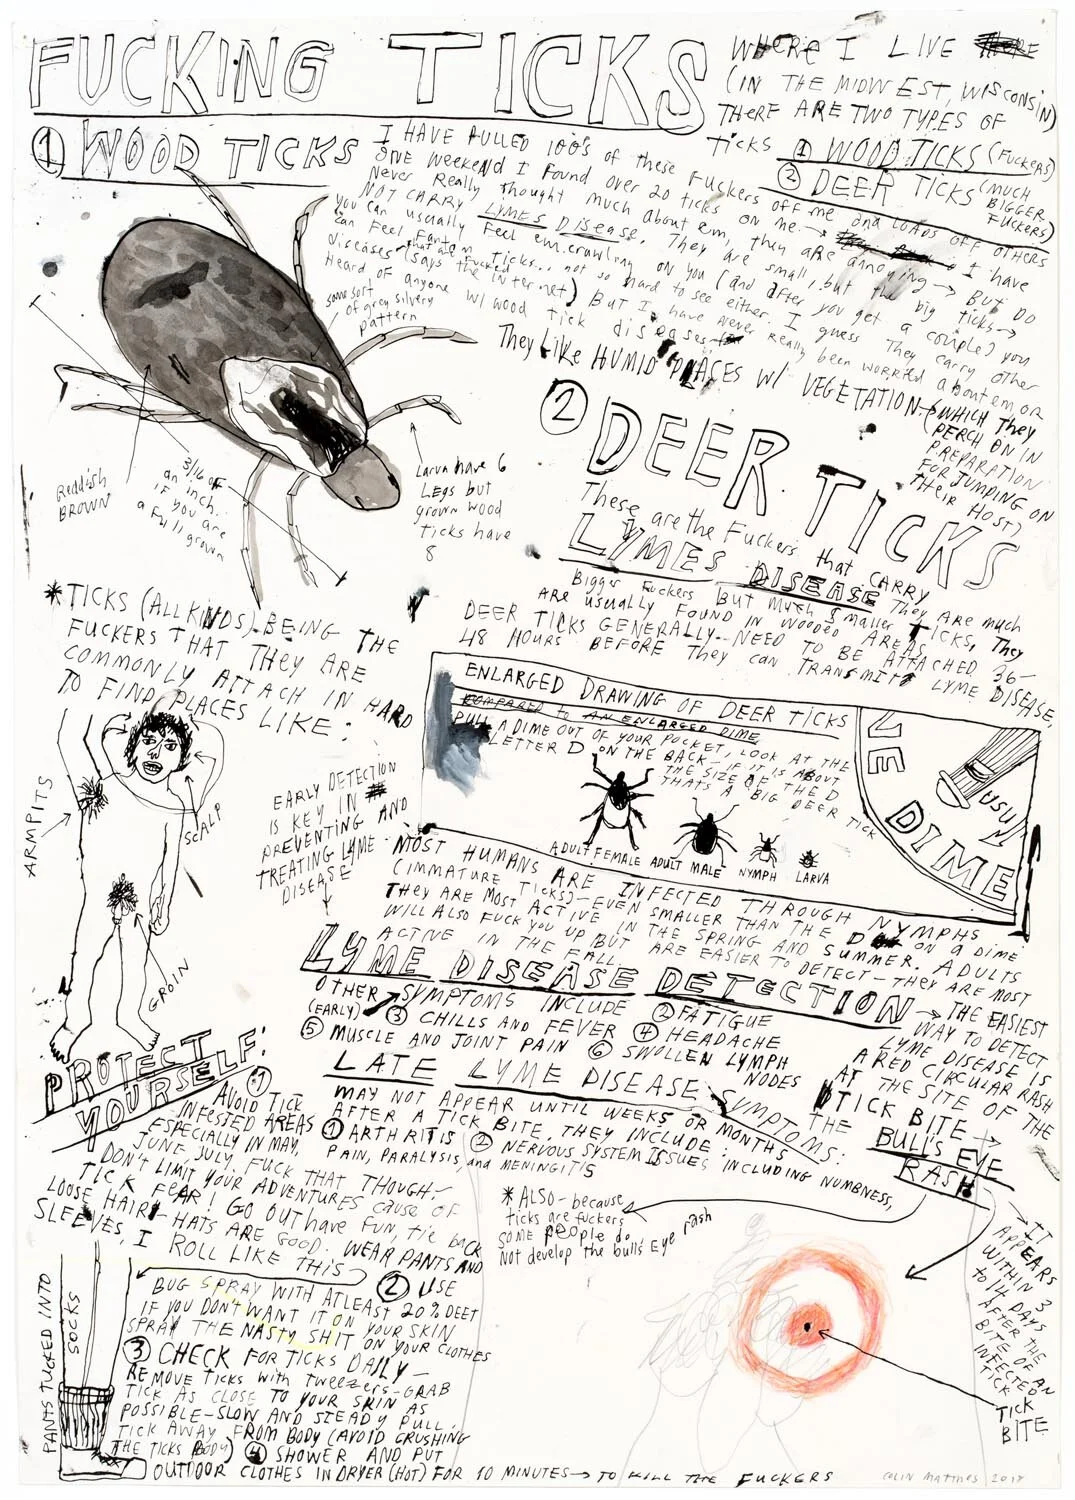 FUCKING TICKS
WHERE I LIVE
(IN THE MIDWEST, WISCONSIN)
THERE ARE TWO TYPES OF
TICKS ① WOOD TICKS (FUCKERS)
② DEER TICKS (MUCH
BIGGER
FUCKERS)
① WOOD TICKS
I HAVE PULLED 100's of these FUCKERS OFF me and LOADS OFF OTHERS
ONE WEEKEND I FOUND over 20 ticks on me. → I have
Never Really thought much about em, they are annoying → BUT DO
NOT CARRY LYMES DISEASE. They are small, but the big ticks →
you can usually Feel em crawling on you (and after you get a couple) you
can feel
Ticks... not so hard to see either. I guess They carry other
diseases (says the internet) BUT I have never Really been worried about em or
Heard of anyone w/ wood tick diseases
They Like HUMID PLACES w/ VEGETATION → (WHICH They
PERCH ON IN
PREPARATION
FOR JUMPING ON
THEIR HOST)
some sort
of grey silvery
pattern
Reddish
BROWN
3/16 of
an inch..
if you are
a full grown
Larva have 6
Legs but
grown wood
Ticks have
8
② DEER TICKS
These are the Fuckers that CARRY
LYMES DISEASE They are much
Bigger Fuckers But much smaller TICKS, They
ARE usually FOUND IN WOODED AREAS.
DEER TICKS GENERALLY NEED TO BE ATTACHED 36-
48 HOURS BEFORE They can TRANSMIT LYME DISEASE.
* TICKS (ALL KINDS) BEING THE
FUCKERS THAT THEY ARE
COMMONLY ATTACH IN HARD
TO FIND PLACES LIKE:
ARMPITS
SCALP
GROIN
ENLARGED DRAWING OF DEER TICKS
COMPARED to AN ENLARGED DIME
PULL A DIME OUT OF YOUR POCKET, LOOK AT THE
LETTER D ON THE BACK - IF IT IS ABOUT
THE SIZE OF THE D
THATS A BIG DEER TICK
ADULT FEMALE ADULT MALE NYMPH LARVA
NE DIME
EARLY DETECTION
IS KEY IN
PREVENTING AND
TREATING LYME
DISEASE
MOST HUMANS ARE INFECTED THROUGH NYMPHS
(IMMATURE TICKS) - EVEN SMALLER THAN THE D ON A DIME
THEY ARE MOST ACTIVE IN THE SPRING AND SUMMER. ADULTS
WILL ALSO FUCK YOU UP BUT ARE EASIER TO DETECT - THEY ARE MOST
ACTIVE IN THE FALL.
LYME DISEASE DETECTION → THE EASIEST
WAY TO DETECT
LYME DISEASE IS
A RED CIRCULAR RASH
AT THE SITE OF THE
TICK BITE →
THE BULL'S EYE
RASH
OTHER SYMPTOMS INCLUDE ② FATIGUE
(EARLY) ③ CHILLS AND FEVER ④ HEADACHE
⑤ MUSCLE AND JOINT PAIN ⑥ SWOLLEN LYMPH
NODES
LATE LYME DISEASE SYMPTOMS:
MAY NOT APPEAR UNTIL WEEKS OR MONTHS
AFTER A TICK BITE. THEY INCLUDE:
① ARTHRITIS ② NERVOUS SYSTEM ISSUES INCLUDING NUMBNESS,
PAIN, PARALYSIS, and MENINGITIS
* ALSO - because
ticks are fuckers
some people do
Not develop the bulls Eye rash
→ IT
APPEARS
WITHIN 3
to 14 DAYS
AFTER THE
BITE OF AN
INFECTED
TICK
TICK
BITE
PROTECT
YOURSELF:
① AVOID TICK
INFESTED AREAS
ESPECIALLY IN MAY,
JUNE, JULY. FUCK THAT THOUGH.
DON'T LIMIT YOUR ADVENTURES cause OF
TICK FEAR! GO OUT have FUN, tie back
LOOSE HAIR - HATS ARE GOOD. WEAR PANTS AND
SLEEVES, I ROLL LIKE THIS
② USE
BUG SPRAY WITH AT LEAST 20% DEET
IF YOU DON'T WANT IT ON YOUR SKIN
SPRAY THE NASTY SHIT ON YOUR CLOTHES
③ CHECK FOR TICKS DAILY -
REMOVE TICKS with TWEEZERS - GRAB
TICK AS CLOSE TO YOUR SKIN AS
POSSIBLE - SLOW AND STEADY PULL
TICK AWAY FROM BODY (AVOID CRUSHING
THE TICKS BODY) ④ SHOWER AND PUT
OUTDOOR CLOTHES IN DRYER (HOT) FOR 10 MINUTES → TO KILL THE FUCKERS
PANTS TUCKED INTO
SOCKS
COLIN MATTHES 2018